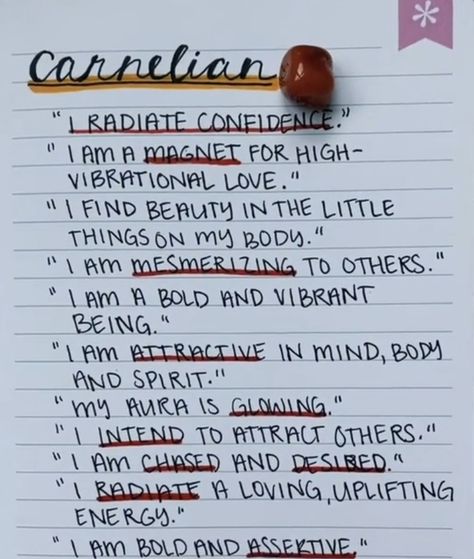 Carnelian
"I RADIATE CONFIDENCE."
"I AM A MAGNET FOR HIGH-
VIBRATIONAL LOVE."
"I FIND BEAUTY IN THE LITTLE
THINGS ON MY BODY."
"I AM MESMERIZING TO OTHERS."
"I AM A BOLD AND VIBRANT
BEING."
"I AM ATTRACTIVE IN MIND, BODY
AND SPIRIT."
"MY AURA IS GLOWING."
"I INTEND TO ATTRACT OTHERS."
"I AM CHASED AND DESIRED."
"I RADIATE A LOVING, UPLIFTING
ENERGY."
"I AM BOLD AND ASSERTIVE."